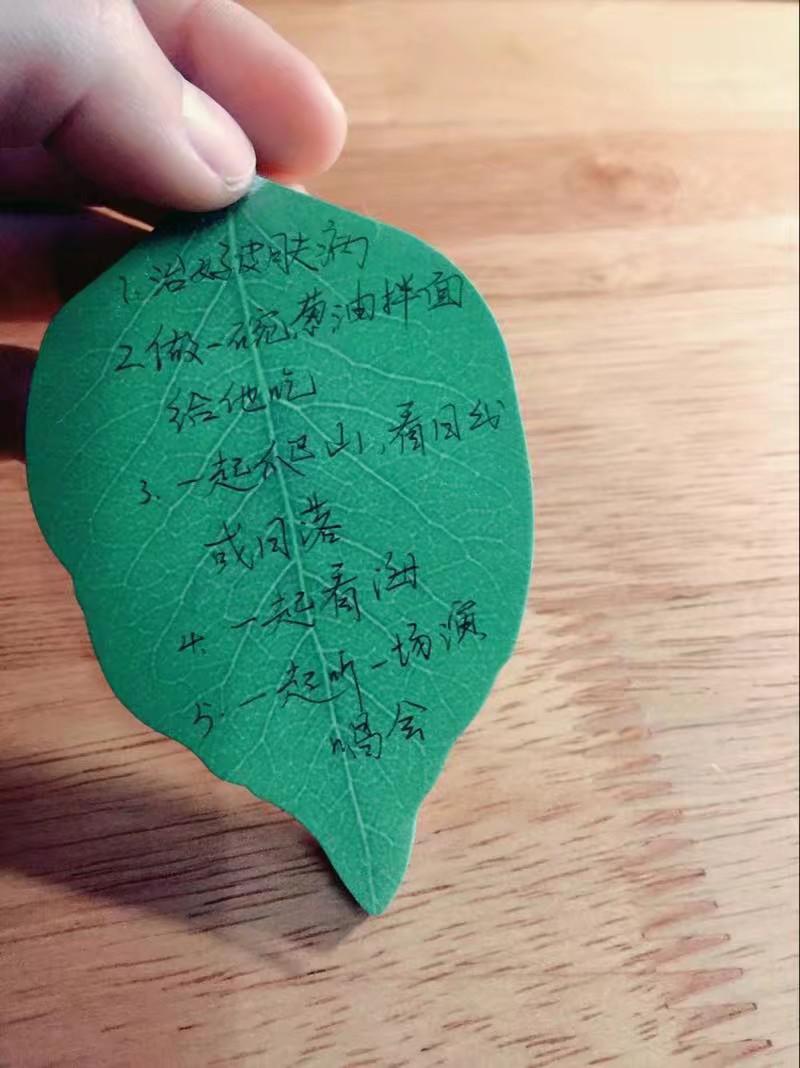 1.治好皮肤病
2.做一碗葱油拌面
给他吃
3.一起爬山,看日出
或日落
4.一起看海
5.一起听一场演
唱会